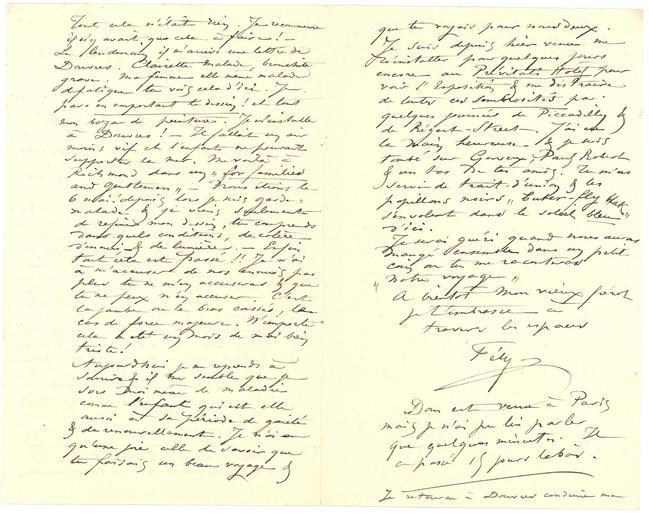 Tout cela n'était rien. Je recommence
il n'y avait que cela à faire! —
Le lendemain il m'arrive une lettre de
Douvres. Clairette malade, bronchite
grave. Ma femme elle même malade
de fatigue tu vois cela d'ici. Je
pars en emportant le dessin! et tout
mon bazar de peinture. Je m'installe
à Douvres! — Il fallait un air
moins vif et l'enfant ne pouvait
supporter la mer. Me voilà à
Richmond dans un "for families
and gentlemen" — Nous étions le
6 mai. depuis lors je suis garde-
malade & je viens seulement
de refaire mon dessin, tu comprends
dans quels conditions, de colère
d'ennui & de lumière. — Enfin
tout cela est passé!! Je n'ai
à m'accuser de nos ennuis pas
plus tu ne m'en accuseras & que
tu ne peux m'en accuser. C'est
la jambe ou le bras cassés, le
cas de force majeure. N'importe
cela a été un mois de mai bien
triste!
Aujourd'hui je me reprends à
sourire & il me semble que je
sors moi même de maladie
comme l'enfant qui est elle
aussi à sa période de gaieté
& de renouvellement. Je n'ai eu
qu'une joie celle de savoir que
tu faisais un beau voyage &
que tu voyais pour nous deux.
Je suis depuis hier venu me
réinstaller pour quelques jours
encore au Previtali Hotel pour
voir l'Exposition & me distraire
de toutes ces sombreries par
quelques journées de Piccadilly &
de Régent-Street. J'ai eu
la main heureuse & je suis
tombé sur Gervex, Paul Robert
& un tas de tes amis. Tu m'as
servi de trait d'union & les
papillons noirs
s'envolent dans le soleil bleu
d'ici.
Je serai guéri quand nous aurons
mangé ensemble dans un petit
coin où tu me raconteras
"Notre voyage"
A bientôt mon vieux
je t'embrasse à
travers les espaces
Fély
Dom est venu à Paris
mais je n'ai pu lui parler
que quelques minutes. Il
a passé 15 jours là bas.
Je retourne à Douvres conduire ma